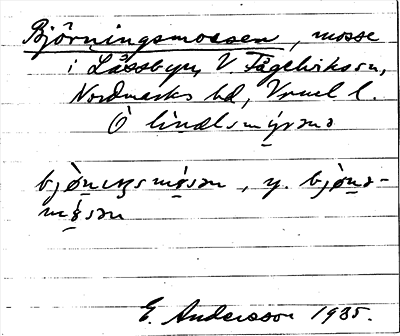 Björningsmossen, mosse
i Låssbyn, V. Fågelviks sn,
Nordmarks hd, Vrml l.
Ö lindlsmýrana
bjö̀nıŋsmǫ́sən, y. bjö̀nə-
mǫ́sən
E. Andersson 1935.